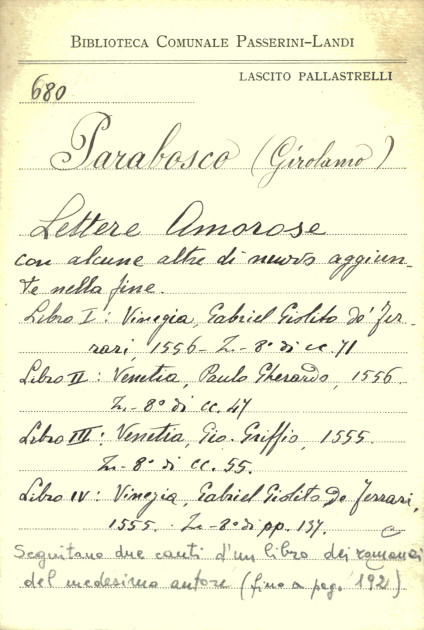 BIBLIOTECA COMUNALE PASSERINI-LANDI
LASCITO PALLASTRELLI
680
Parabosco (Girolamo)
Lettere Amorose
con alcune altre di nuovo aggiun-
te nella fine.
Libro I: Vinegia, Gabriel Giolito de' Fer-
rari, 1556 - In-8° di cc. 71
Libro II: Venetia, Paulo Gherardo, 1556.
In-8° di cc. 47
Libro III: Venetia, Gio. Griffio, 1555.
In-8° di cc. 55.
Libro IV: Vinegia, Gabriel Giolito De Ferrari,
1555. - In-8° di pp. 137.
Seguitano due canti d'un libro dei romanzi
del medesimo autore (fino a pag. 192)